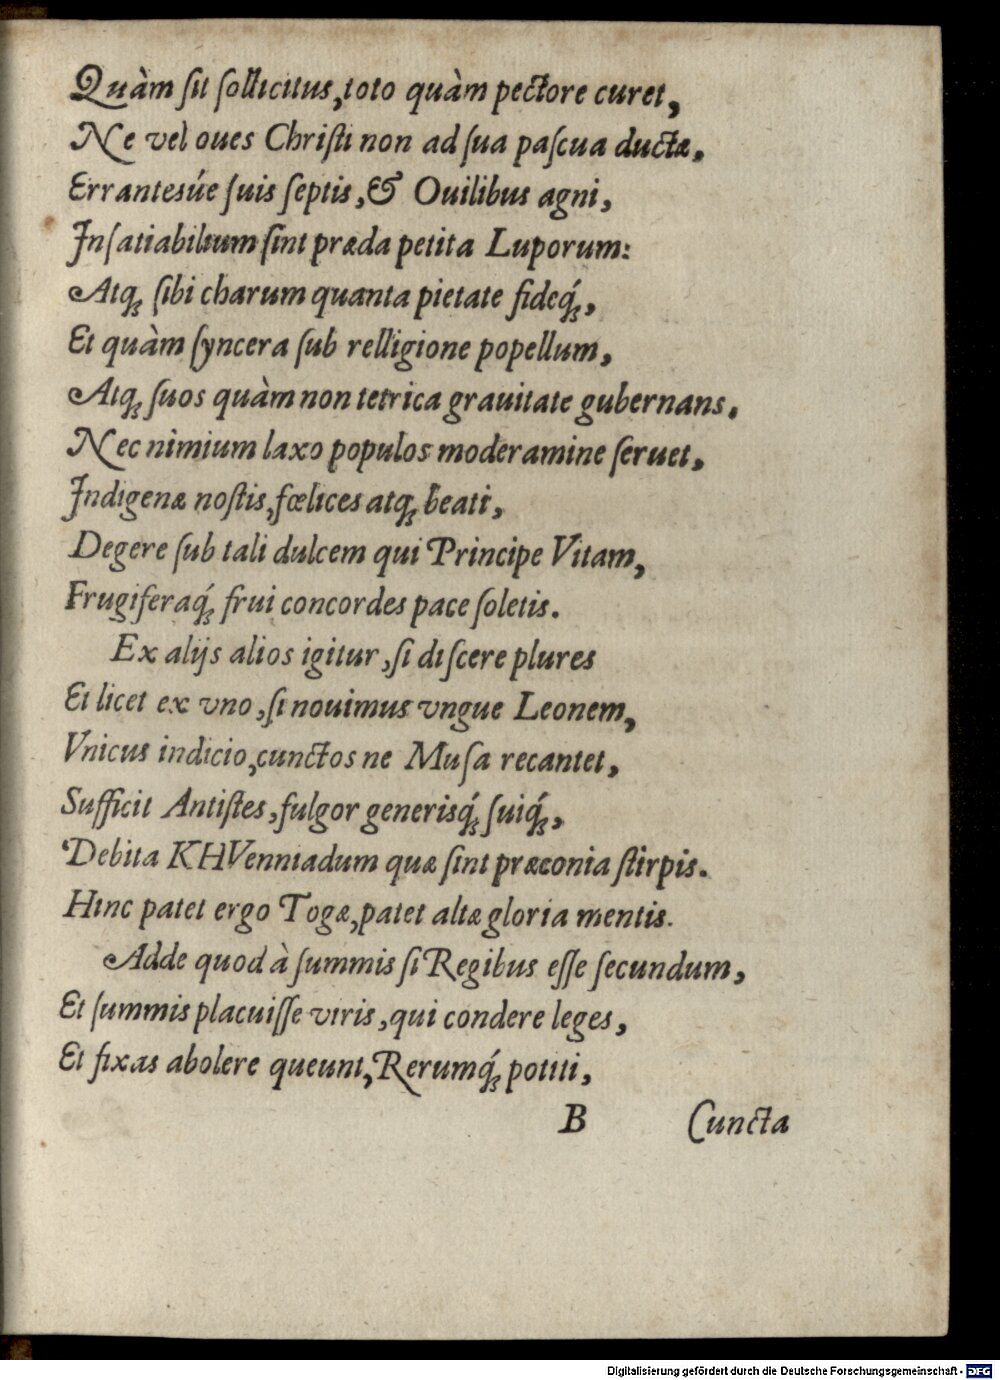 Quàm ſit ſollicitus, toto quàm pectore curet,
Ne vel oues Chriſti non ad ſua paſcua ductæ,
Errantesúe ſuis ſeptis, & Ouilibus agni,
Inſatiabilium ſint præda petita Luporum:
Atq́; ſibi charum quanta pietate fideq́;,
Et quàm ſyncera ſub relligione popellum,
Atq́; ſuos quàm non tetrica grauitate gubernans.
Nec nimium laxo populos moderamine ſeruet,
Indigenæ noſtis, fœlices atq́; beati,
Degere ſub tali dulcem qui Principe Vitam,
Frugiferaq́; frui concordes pace ſoletis.
Ex alijs alios igitur, ſi diſcere plures
Et licet ex vno, ſi nouimus vngue Leonem,
Vnicus indicio, cunctos ne Muſa recantet,
Sufficit Antiſtes, fulgor generisq́; ſuiq́;,
Debita KHVenniadum quæ ſint præconia ſtirpis.
Hinc patet ergo Togæ, patet altæ gloria mentis.
Adde quod à ſummis ſi Regibus eſſe ſecundum,
Et ſummis placuiſſe viris, qui condere leges,
Et fixas abolere queunt, Rerumq́; potiti,
B Cuncta
Digitalisierung gefördert durch die Deutsche Forschungsgemeinschaft - DFG